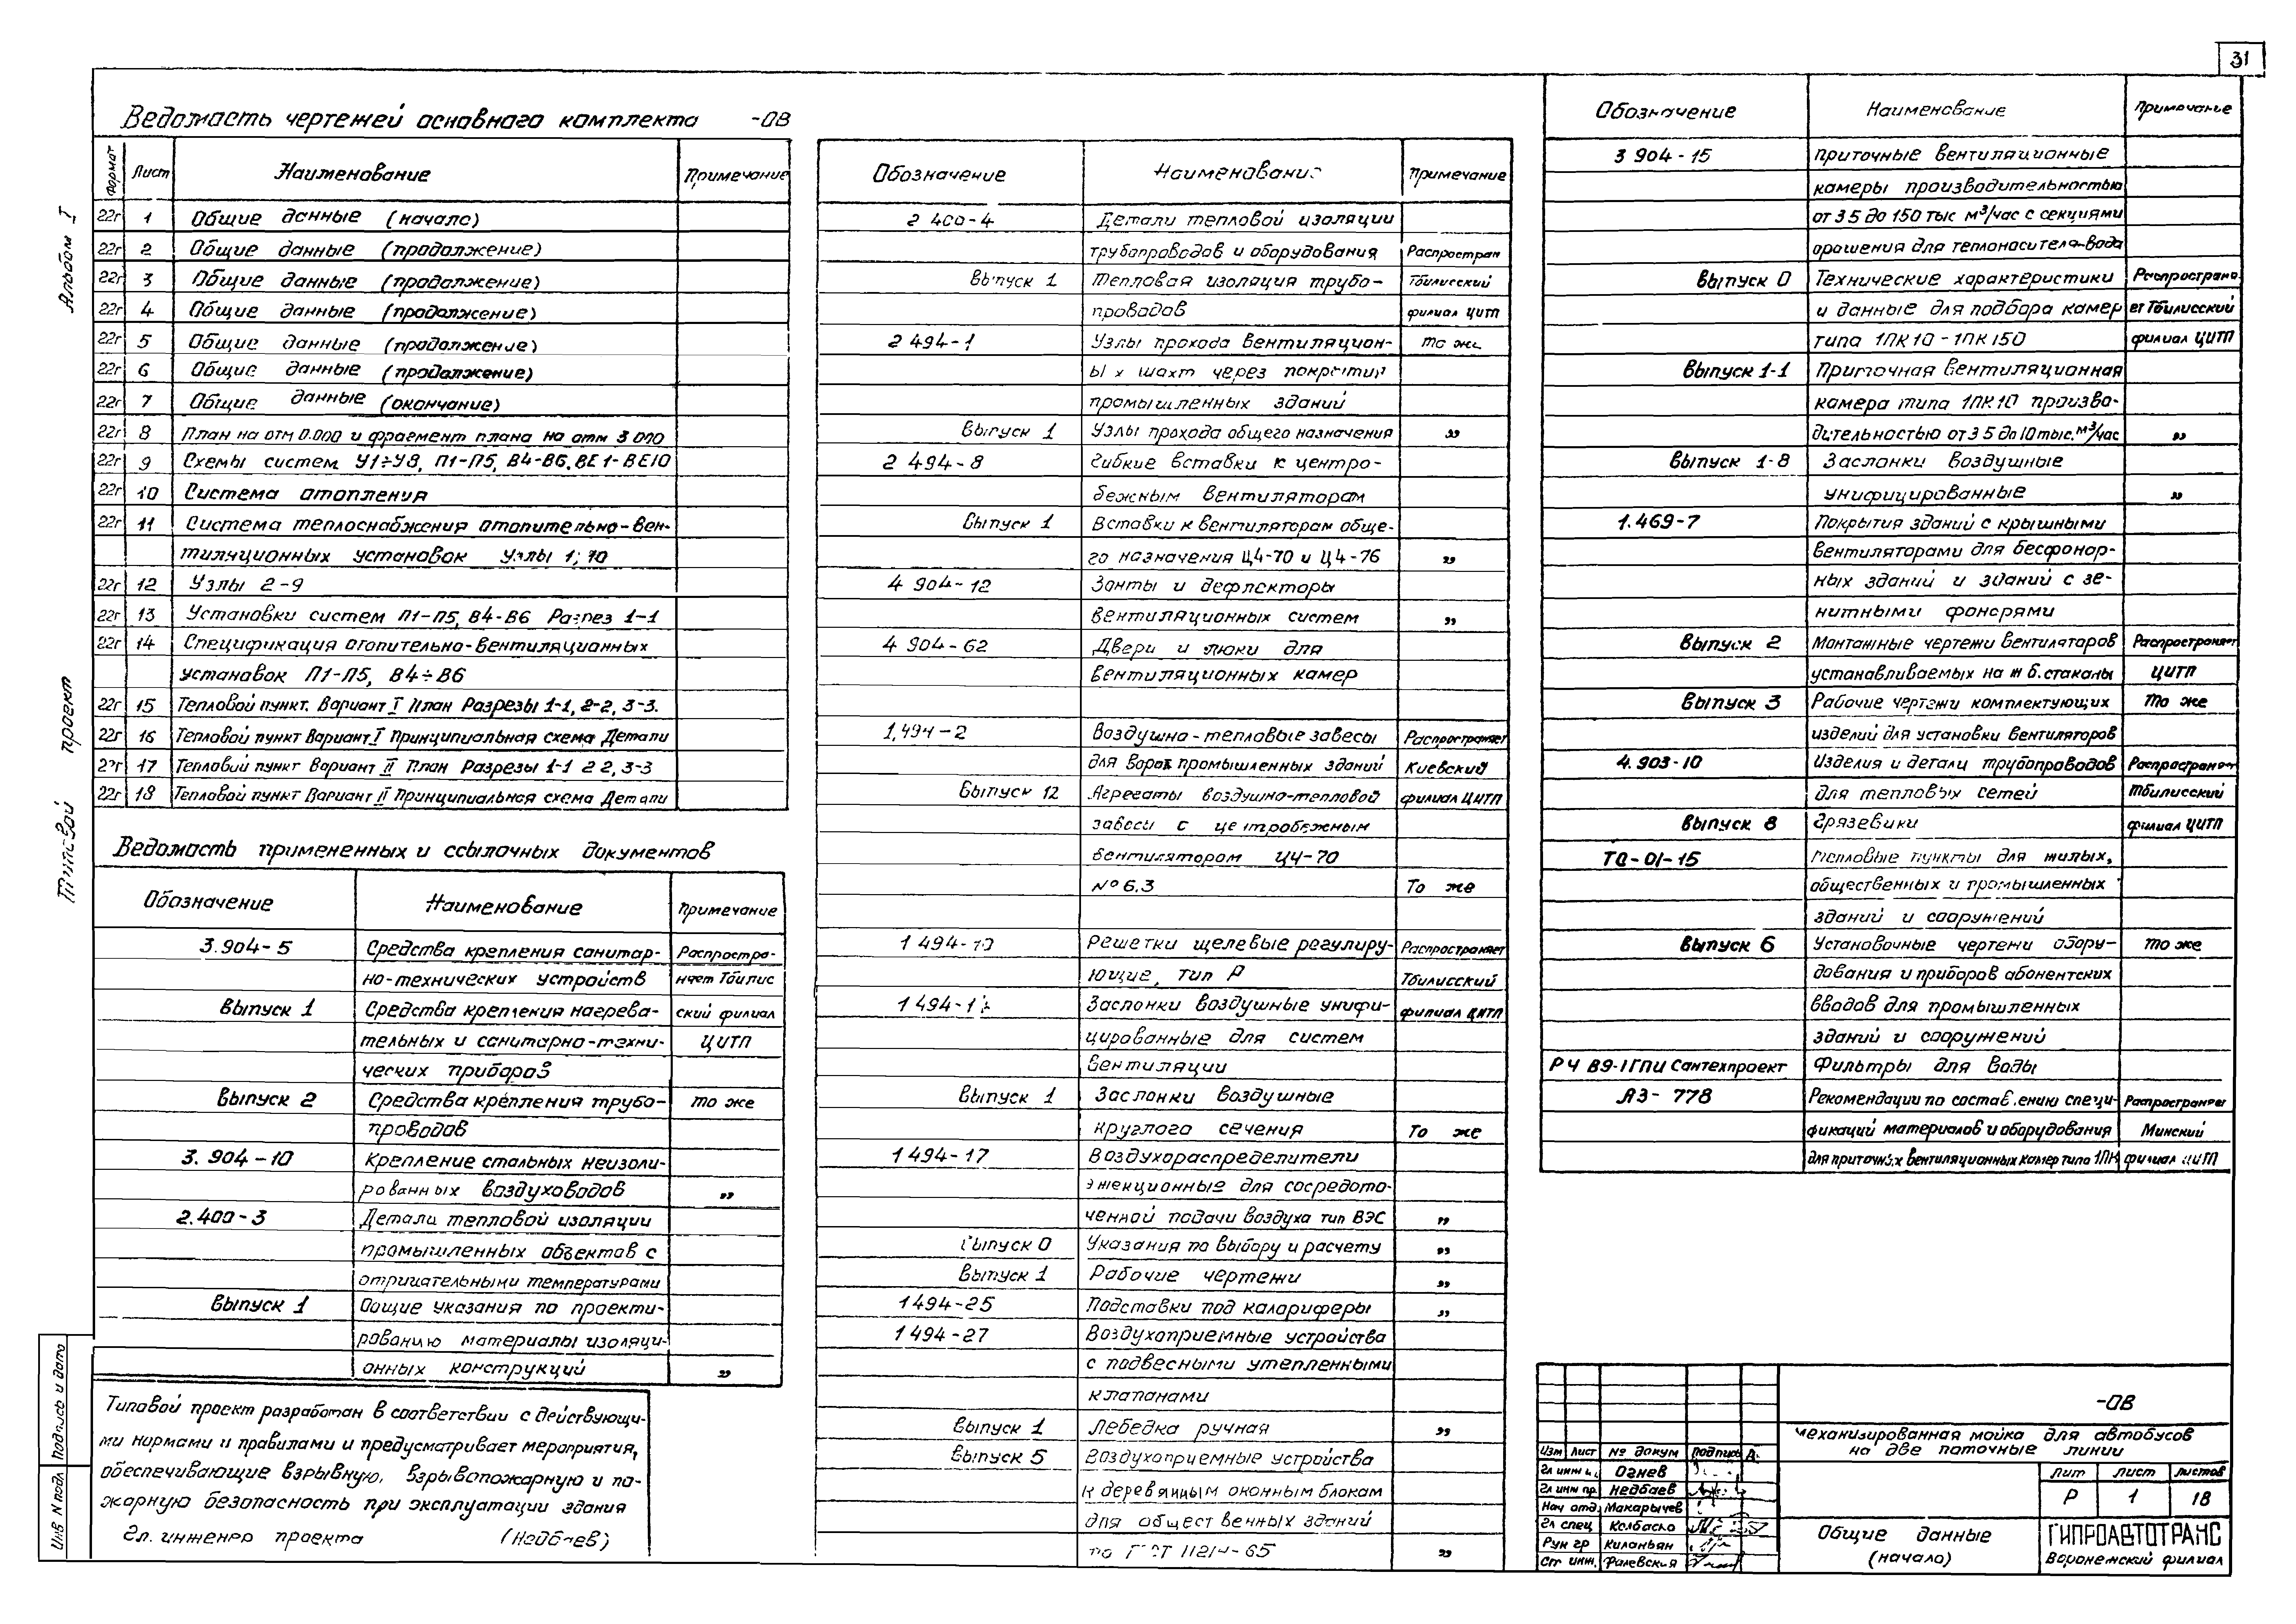 31
Альбом I
Типовой проект
Ведомость чертежей основного комплекта -ОВ
Формат Лист Наименование Примечание
22г 1 Общие данные (начало)
22г 2 Общие данные (продолжение)
22г 3 Общие данные (продолжение)
22г 4 Общие данные (продолжение)
22г 5 Общие данные (продолжение)
22г 6 Общие данные (продолжение)
22г 7 Общие данные (окончание)
22г 8 План на отм 0.000 и фрагмент плана на отм 3 000
22г 9 Схемы систем У1÷У8, П1-П5, В4-В6, ВЕ1-ВЕ10
22г 10 Система отопления
22г 11 Система теплоснабжения отопительно-вен-
тиляционных установок Узлы 1; 10
22г 12 Узлы 2-9
22г 13 Установки систем П1-П5, В4-В6 Разрез 1-1
22г 14 Спецификация отопительно-вентиляционных
установок П1-П5, В4÷В6
22г 15 Тепловой пункт. Вариант I План Разрезы 1-1, 2-2, 3-3.
22г 16 Тепловой пункт Вариант I Принципиальная схема Детали
22г 17 Тепловой пункт Вариант II План Разрезы 1-1 2 2, 3-3
22г 18 Тепловой пункт Вариант II Принципиальная схема Детали
Ведомость примененных и ссылочных документов
Обозначение Наименование Примечание
3.904-5 Средства крепления санитар- Распростра-
но-технических устройств няет Тбилис
Выпуск 1 Средства крепления нагрева- ский филиал
тельных и санитарно-техни- ЦИТП
ческих приборов
Выпуск 2 Средства крепления трубо- то же
проводов
3.904-10 Крепление стальных неизоли-
рованных воздуховодов "
2.400-3 Детали тепловой изоляции
промышленных объектов с
отрицательными температурами
Выпуск 1 Общие указания по проекти-
рованию материалы изоляци-
онных конструкций "
Типовой проект разработан в соответствии с действующи-
ми нормами и правилами и предусматривает мероприятия,
обеспечивающие взрывную, взрывопожарную и по-
жарную безопасность при эксплуатации здания
Гл. инженер проекта (Недбаев)
Инв N подл Подпись и дата
Обозначение Наименование Примечание
2 400-4 Детали тепловой изоляции
трубопроводов и оборудования Распростран
Выпуск 1 Тепловая изоляция трубо- Тбилисский
проводов филиал ЦИТП
2 494-1 Узлы прохода вентиляцион- то же
ых шахт через покрытия
промышленных зданий
Выпуск 1 Узлы прохода общего назначения "
2 494-8 Гибкие вставки к центро-
бежным вентиляторам
Выпуск 1 Вставки к вентиляторам обще-
го назначения Ц4-70 и Ц4-76 "
4 904-12 Зонты и дефлекторы
вентиляционных систем "
4 904-62 Двери и люки для
вентиляционных камер
1.494-2 Воздушно-тепловые завесы Распространяет
для ворот промышленных зданий Киевский
Выпуск 12 Агрегаты воздушно-тепловой филиал ЦИТП
завесы с центробежным
вентилятором Ц4-70
№ 6.3 То же
1 494-10 Решетки щелевые регулиру- Распространяет
ющие, тип Р Тбилисский
1 494-1 Заслонки воздушные унифи- филиал ЦИТП
цированные для систем
вентиляции
Выпуск 1 Заслонки воздушные
круглого сечения То же
1 494-17 Воздухораспределители
эжекционные для сосредото-
ченной подачи воздуха тип ВЭС "
Выпуск 0 Указания по выбору и расчету "
Выпуск 1 Рабочие чертежи "
1 494-25 Подставки под калориферы "
1 494-27 Воздухоприемные устройства
с подвесными утепленными
клапанами
Выпуск 1 Лебедка ручная "
Выпуск 5 Воздухоприемные устройства
к деревянным оконным блокам
для общественных зданий
по ГОСТ 11214-65 "
Обозначение Наименование Примечание
3 904-15 Приточные вентиляционные
камеры производительностью
от 3 5 до 150 тыс м³/час с секциями
орошения для теплоносителя-вода
Выпуск 0 Технические характеристики Распростроня
и данные для подбора камер ет Тбилисский
типа 1ПК10-1ПК150 филиал ЦИТП
Выпуск 1-1 Приточная вентиляционная
камера типа 1ПК10 произво-
дительностью от 3 5 до 10 тыс. м³/час "
Выпуск 1-8 Заслонки воздушные
унифицированные "
1.469-7 Покрытия зданий с крышными
вентиляторами для бесфонар-
ных зданий и зданий с зе-
нитными фонарями
Выпуск 2 Монтажные чертежи вентиляторов Распространяет
устанавливаемых на ж б. стаканы ЦИТП
Выпуск 3 Рабочие чертежи комплектующих То же
изделий для установки вентиляторов
4.903-10 Изделия и детали трубопроводов Распространяет
для тепловых сетей Тбилисский
Выпуск 8 Грязевики филиал ЦИТП
ТС-01-15 Тепловые пункты для жилых,
общественных и промышленных
зданий и сооружений
Выпуск 6 Установочные чертежи обору- То же
дования и приборов абонентских
вводов для промышленных
зданий и сооружений
РЧ В9-1 ГПИ Сантехпроект Фильтры для воды
А3-778 Рекомендации по составлению специ- Распространяет
фикаций материалов и оборудования Минский
для приточных вентиляционных камер типа 1ПК филиал ЦИТП
-ОВ
Механизированная мойка для автобусов
на две поточные линии
Изм Лист № докум Подпись Д.
Гл инж и. Огнев
Гл инж пр. Недбаев
Нач отд. Макарычев
Гл спец Колбаско
Рук гр Киланьян
Ст инж. Фалевская
Лит Лист Листов
Р 1 18
Общие данные
(начало)
ГИПРОАВТОТРАНС
Воронежский филиал